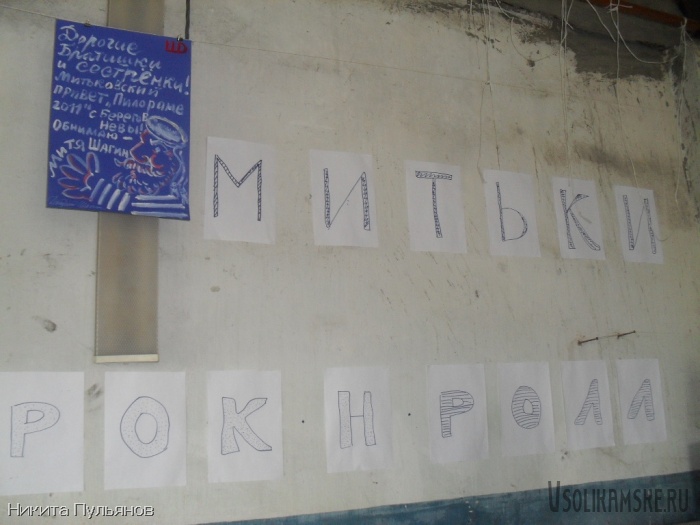 Дорогие
Братишки
и сестрёнки!
Митьковский
привет "Пилораме
2011" с берегов
Невы!
Обнимаю -
Митя Шагин
МИТЬКИ
РОК Н РОЛЛ
Никита Пульянов
USOLIKAMSKE.RU